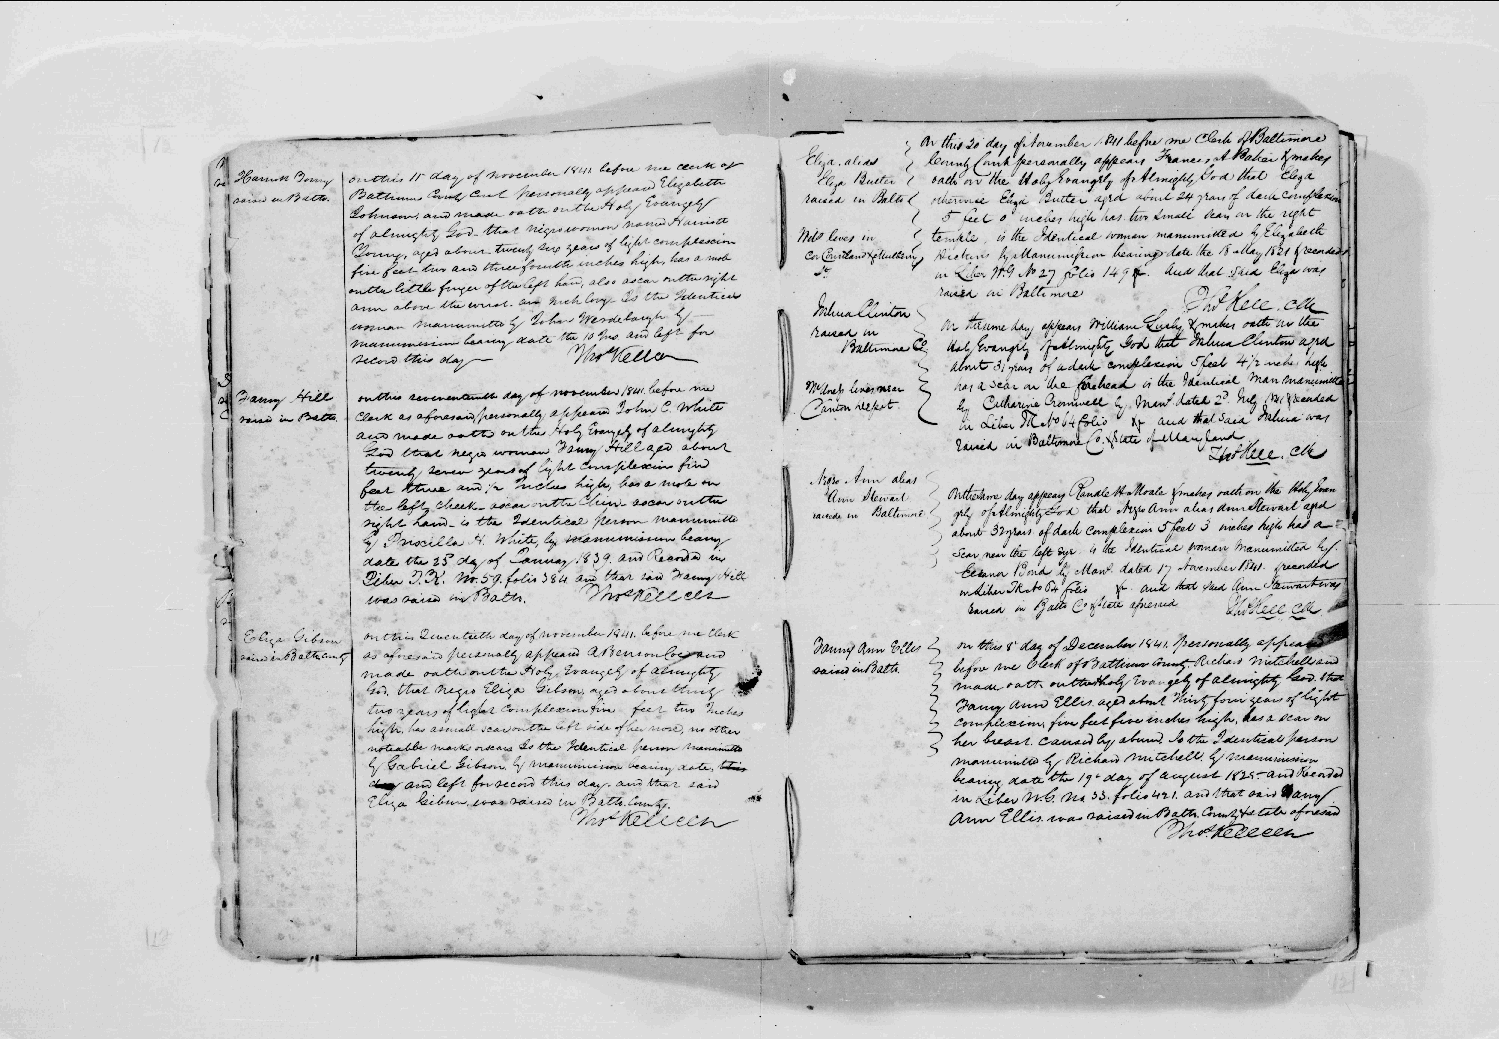 Harriott Young
raised in Balto.
on this 15 day of november 1841. before me clerk of
Baltimore County Court Personally appeared Elizabeth
Johnson, and made oath on the Holy Evangely
of almighty God that negro woman named Harriott
Young, aged about twenty six years of light complexion
five feet two and three fourth inches high, has a mole
on the little finger of the left hand, also a scar on the right
arm above the wrist. an inch long Is the Identical
woman manumitted by John by
manumission bearing date the 10 and left for
record this day
Thos Kell clk
Fanny Hill
raised in Balto.
on this seventeenth day of november 1841. before me
Clerk as aforesaid, personally appeared John C. White
and made oath on the Holy Evangely of almighty
God that negro woman Fanny Hill aged about
twenty seven years of light complexion five
feet three and 1/2 Inches high, has a mole on
the left cheek a scar on the Chin a scar on the
right hand is the Identical person manumitted
by Priscilla H. White, by manumission bearing
date the 25 day of January 1839. and Recorded in
Liber T.K. No. 59. folio 384 and that said Fanny Hill
was raised in Balto.
Thos Kell clk
Eliza Gibson
raised in Balto. County
on this Twentieth day of november 1841. before me Clerk
as aforesaid personally appeared A Benson Coe and
made oath on the Holy Evangely of almighty
God, that negro Eliza Gibson, aged about thirty
two years of light complexion five feet two Inches
high, has a small scar on the left side of her nose, no other
noticable marks or scars Is the Identical person manumitted
by Gabriel Gibson, by manumission bearing date, this
day and left for record this day. and that said
Eliza Gibson, was raised in Balto. County.
Thos Kell clk
Eliza. alias
Eliza Butler
raised in Balto
lives in
Cor Courtland & Mulberry
St.
On this 20 day of November 1841 before me Clerk of Baltimore
County Court personally appears Francis A & makes
oath on the Holy Evangely of Almighty God that Eliza
otherwise Eliza Butler aged about 24 years of dark complexion
5 feet 0 inches high has two small scars on the right
temple, is the Identical woman manumitted by Elizabeth
by Manumission bearing date the 18 May 1821 & recorded
in Liber W.G No 27 folio 149 &c. and that said Eliza was
raised in Baltimore
Thos Kell. Clk
Joshua Clinton
raised in
Baltimore Co
lives near
Canton
On the same day appears William & makes oath on the
Holy Evangely of Almighty God that Joshua Clinton aged
about 31 years of a dark complexion 5 feet 4 1/2 inches high
has a scar on the forehead is the Identical Man manumitted
by Catharine Cromwell by Manu. dated 2d. July & recorded
in Liber TK No 64 folio &c and that said Joshua was
raised in Baltimore Co. & State of Maryland
Thos Kell. Clk
Negro Ann alias
Ann Stewart
raised in Baltimore
On the same day appears Randle H Moale & makes oath on the Holy Evan
gely of Almighty God that Negro Ann alias Ann Stewart aged
about 32 years of dark complexion 5 feet 3 inches high has a
scar near the left eye is the Identical woman manumitted by
Eleanor Bond by Manu. dated 17 November 1841. & recorded
in Liber TK No 64 folio &c. and that said Ann Stewart was
raised in Balto Co & State aforesaid
Thos Kell Clk
Fanny Ann Ellis
raised in Balto.
on this 8th day of December 1841. personally appeared
before me Clerk of Baltimore County Richard Mitchell and
made oath on the Holy Evangely of almighty God. that
Fanny Ann Ellis. aged about Thirty four years of light
complexion, five feet five inches high, has a scar on
her breast. caused by a burn, Is the Identical person
manumitted by Richard Mitchell. by manumission
bearing date the 19th day of august 1825 and Recorded
in Liber W.G. No. 33. folio 421. and that said Fanny
Ann Ellis. was raised in Balto. County & state aforesaid
Thos Kell clk